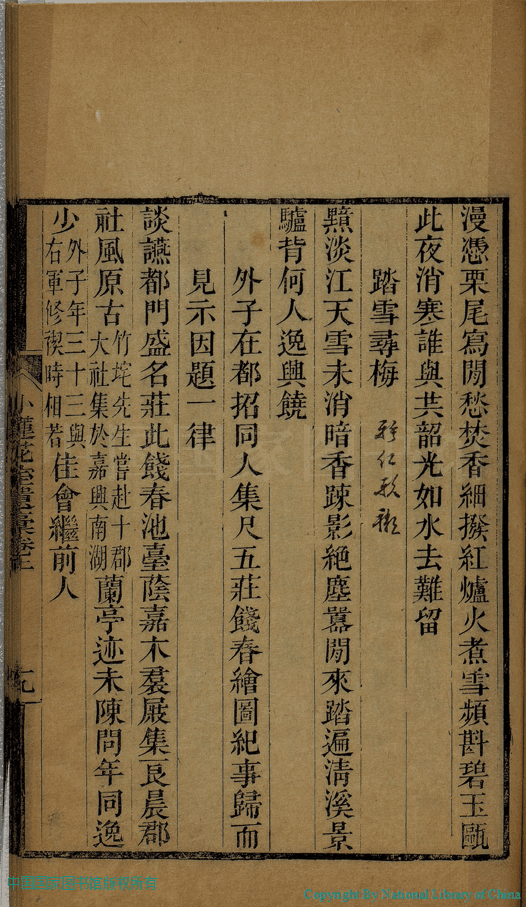 漫憑栗尾寫閒愁焚香細撥紅爐火煮雪頻斟碧玉甌
此夜消寒誰與共韶光如水去難留
踏雪尋梅
黯淡江天雪未消暗香疎影絕塵囂閒來踏遍清溪景
驢背何人逸興饒
外子在都招同人集尺五莊餞春繪圖紀事歸而
見示因題一律
談讌都門盛名莊此餞春池臺蔭嘉木裠屐集良辰郡
社風原古竹垞先生嘗赴十郡大社集於嘉興南湖蘭亭迹未陳問年同逸
少外子年三十三與右軍修禊時相若佳會繼前人
小蓮花室遺稾卷上
九
中国国家图书馆版权所有
Copyright By National Library of China